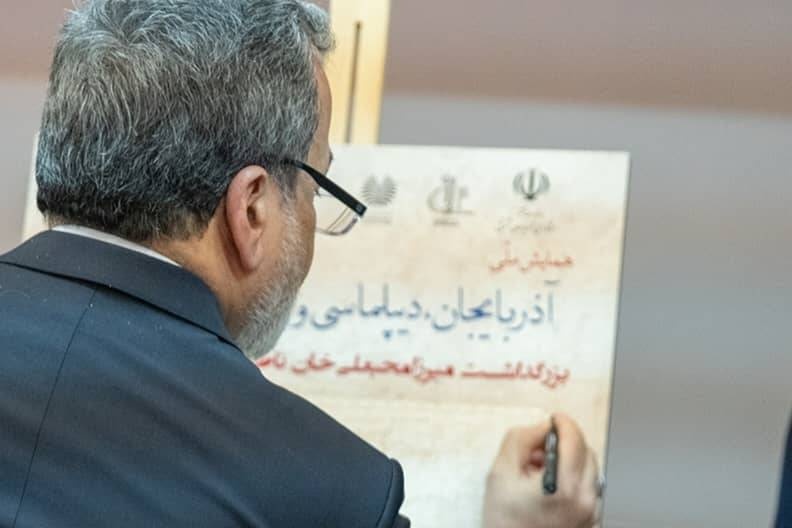 همایش ملّی
آذربایجان، دیپلماسی و
بزرگداشت میرزا محبعلی خان